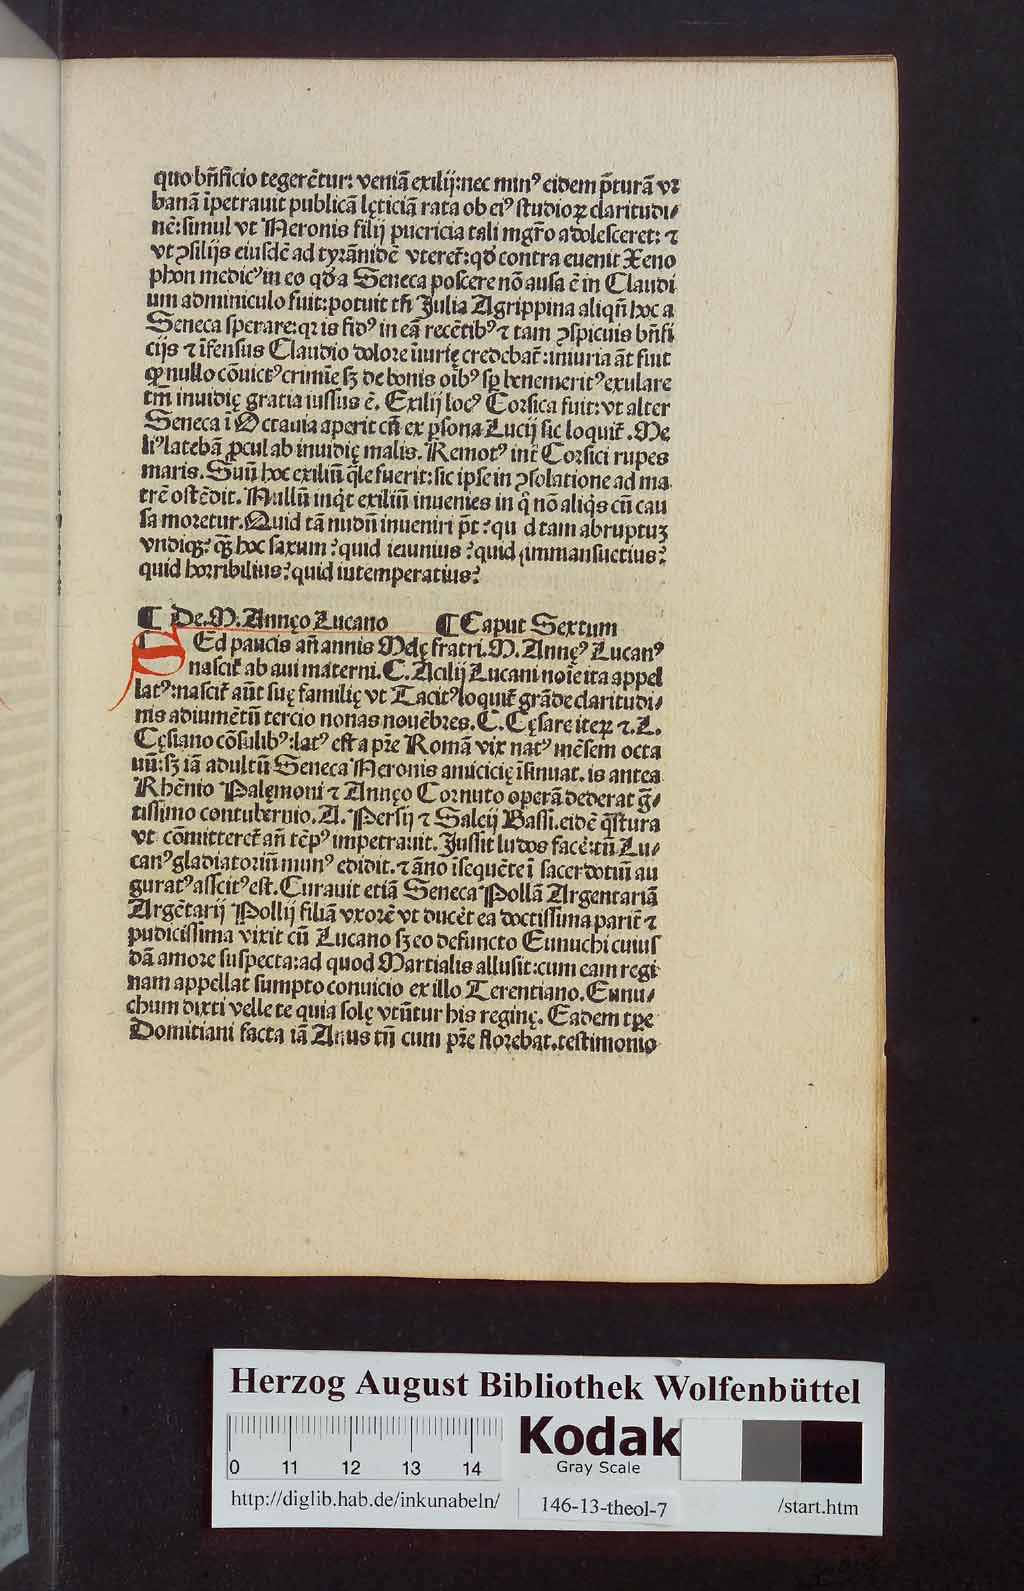 quo bñficio tegerẽtur: veniã exilij: nec minꝰ eidem p̃turã vr
banã ĩpetrauit publicã lęticiã rata ob eiꝰ studioꝝ claritudi⸗
nẽ: simul vt Neronis filij puericia tali mgr̃o adolesceret: ⁊
vt ꝯsilijs eiusdẽ ad tyrãnidẽ vteret᷑: qd̕ contra euenit Xeno
phon medicꝰ in eo qd̕ a Seneca poscere nõ ausa ẽ in Claudi
um adminiculo fuit: potuit tñ Julia Agrippina aliqñ hoc a
Seneca sperare: qꝛ is fidꝰ in eã recẽtibꝰ ⁊ tam ꝯspicuis bñfi
cijs ⁊ ĩfensus Claudio dolore ĩiurię credebat᷑: iniuria ãt fuit
ꝙ nullo cõuictꝰ crimĩe sꝫ de bonis oĩbꝰ sꝑ benemeritꝰ exulare
tm̃ inuidię gratia iussus ẽ. Exilij locꝰ Corsica fuit: vt alter
Seneca ĩ Octauia aperit cũ ex ꝑsona Lucij sic loquit᷑. Me
liꝰ latebã ꝓcul ab inuidię malis. Remotꝰ int̃ Corsici rupes
maris. Suũ hoc exiliũ q̃le fuerit: sic ipse in ꝯsolatione ad ma
trẽ ostẽdit. Nullũ inq̇t exiliũ inuenies in q̊ nõ aliq̇s cũ cau
sa moretur. Quid tã nudũ inueniri p̃t? qu d tam abruptuꝫ
vndiqꝫ? q̃ꝫ hoc saxum? quid ieiunius? quid immansuetius?
quid horribilius? quid intemperatius?
¶ De. M. Annęo Lucano ¶ Caput Sextum
SEd paucis añ annis Melę fratri. M. Annęꝰ Lucanꝰ
nascit᷑ ab aui materni. C. Acilij Lucani noĩe ita appel
latꝰ: nascit᷑ aũt suę familię vt Tacitꝰ loquit᷑ grãde claritudi⸗
nis adiumẽtũ tercio nonas nouẽbres. C. Cęsare iteꝝ ⁊. L.
Cęsiano cõsulibꝰ: latꝰ est a pr̃e Romã vix natꝰ mẽsem octa
uũ: sꝫ iã adultũ Seneca Neronis amicicię ĩsinuat. is antea
Rhẽnio Palęmoni ⁊ Annęo Cornuto operã dederat g̃⸗
tissimo contubernio. A. Persij ⁊ Saleij Bassi. eidẽ q̃stura
vt cõmitteret᷑ añ tẽpꝰ impetrauit. Jussit ludos facẽ: tũ Lu⸗
canꝰ gladiatoriũ munꝰ edidit. ⁊ ãno ĩsequẽte ĩ sacerdotiũ au
guratꝰ ascitꝰ est. Curauit etiã Seneca Pollã Argentariã
Argẽtarij Pollij filiã vxorẽ vt ducẽt ea doctissima parit᷑ ⁊
pudicissima vixit cũ Lucano sꝫ eo defuncto Eunuchi cuius
dã amore suspecta: ad quod Martialis allusit: cum eam regi
nam appellat sumpto conuicio ex illo Terentiano. Eunu⸗
chum dixti velle te quia solę vtũtur his reginę. Eadem tꝑe
Domitiani facta iã Anus tñ cum pr̃e florebat. testimonio
Herzog August Bibliothek Wolfenbüttel
Kodak
Gray Scale
0 11 12 13 14
http://diglib.hab.de/inkunabeln/ 146-13-theol-7 /start.htm